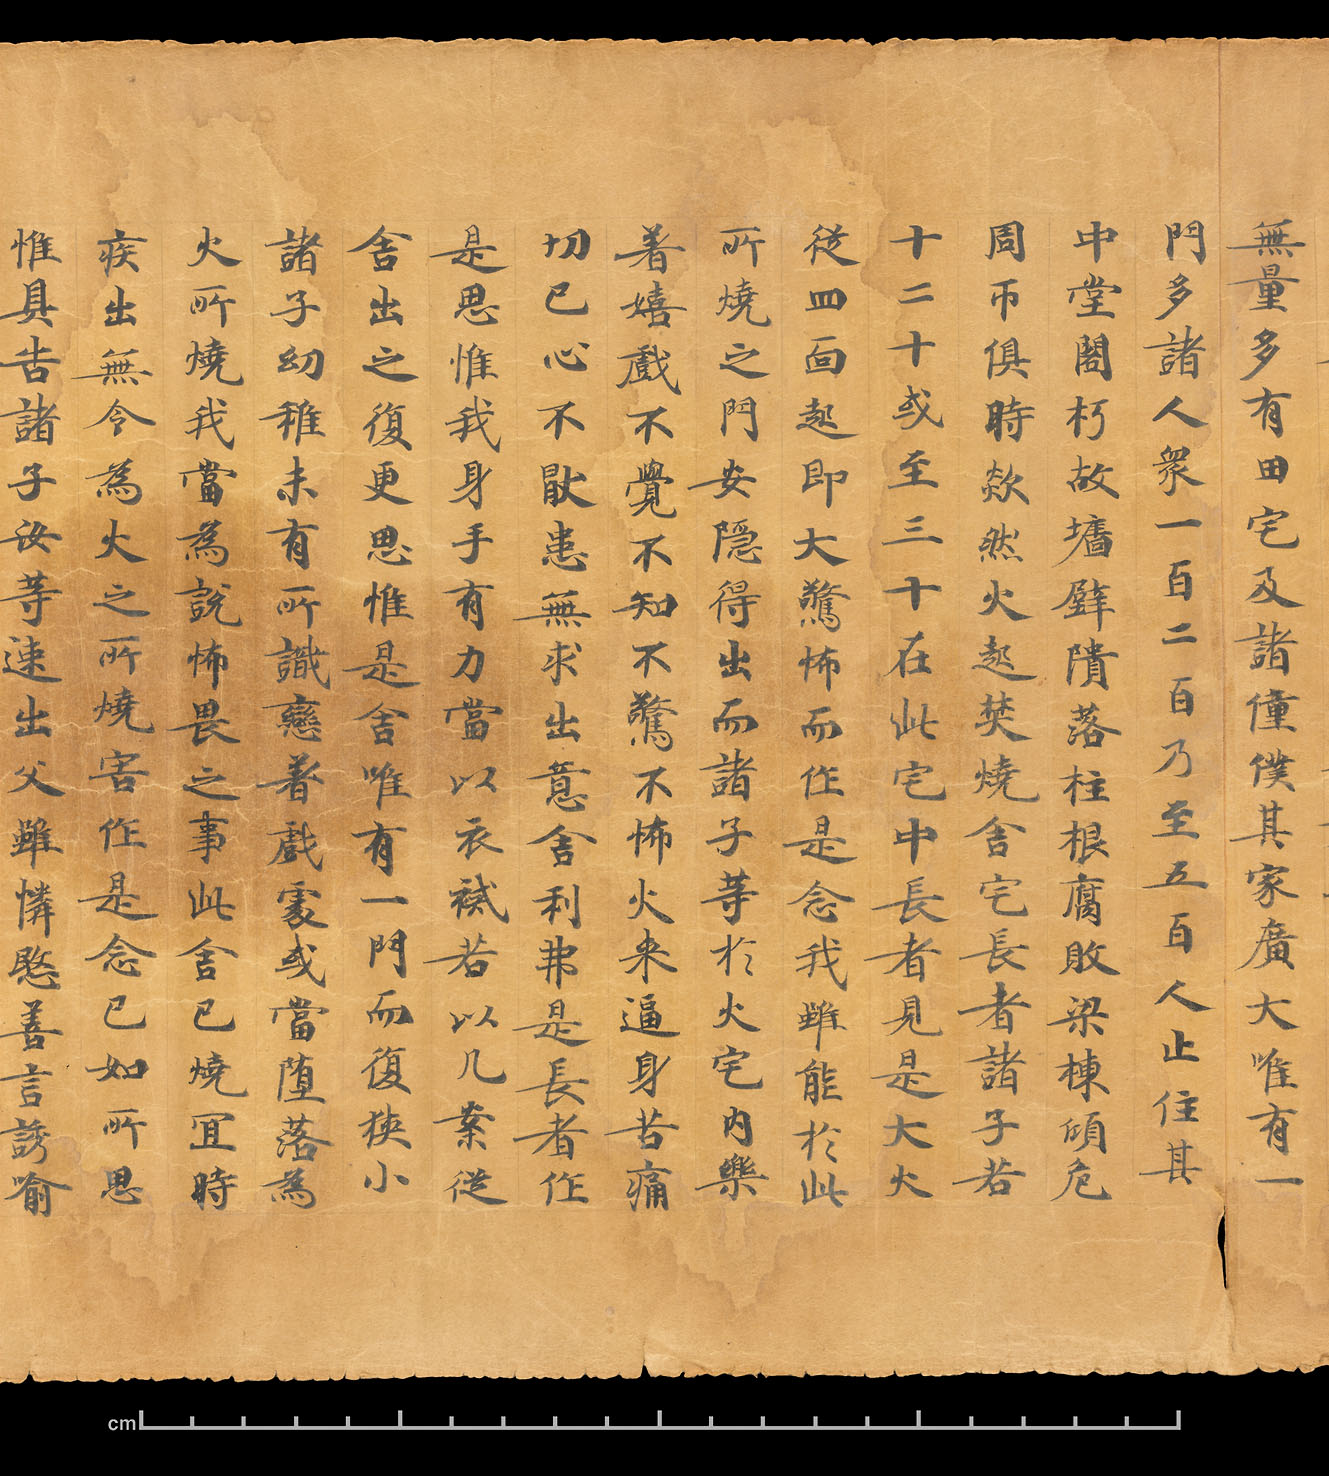 無量多有田宅及諸僮僕其家廣大唯有一
門多諸人衆一百二百乃至五百人止住其
中堂閣朽故墻壁隤落柱根腐敗梁棟傾危
周帀俱時欻然火起焚燒舍宅長者諸子若
十二十或至三十在此宅中長者見是大火
従四面起即大驚怖而作是念我雖能於此
所燒之門安隱得出而諸子等於火宅內樂
著嬉戲不覺不知不驚不怖火来逼身苦痛
切己心不猒患無求出意舍利弗是長者作
是思惟我身手有力當以衣裓若以几案従
舍出之復更思惟是舍唯有一門而復狹小
諸子幼稚未有所識戀著戲處或當墮落為
火所燒我當為說怖畏之事此舍已燒冝時
疾出無令為火之所燒害作是念已如所思
惟具告諸子汝等速出父雖憐愍善言誘喻
cm